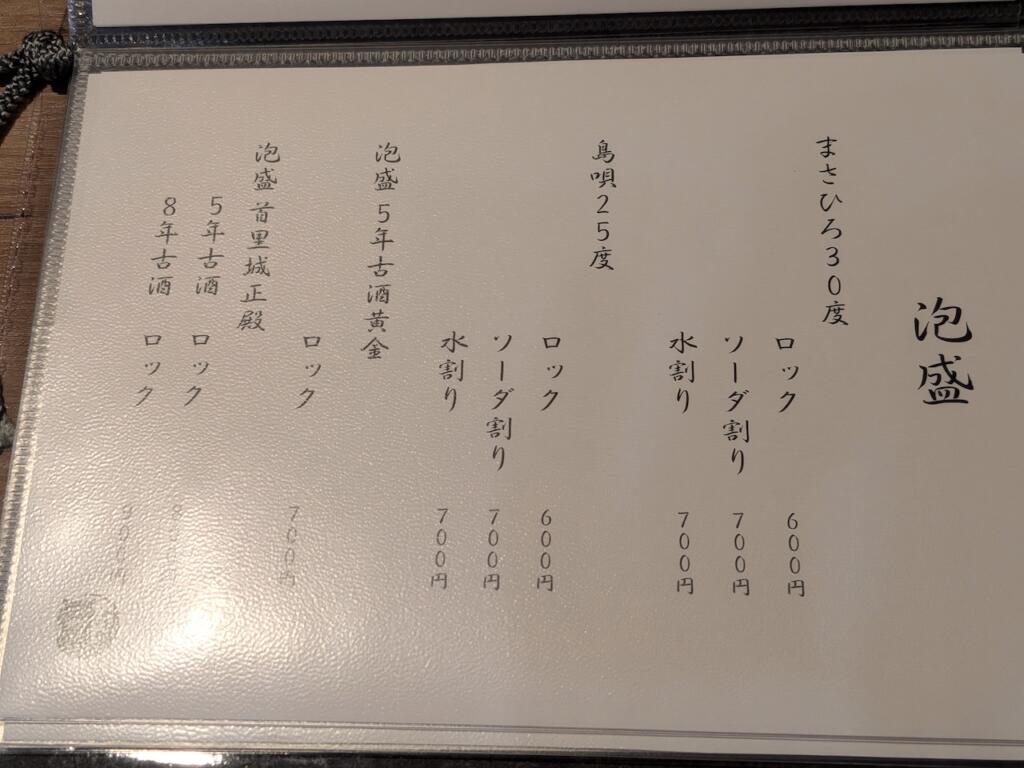 泡盛
まさひろ30度
ロック 600円
ソーダ割り 700円
水割り 700円
島唄25度
ロック 600円
ソーダ割り 700円
水割り 700円
泡盛 5年古酒黄金
ロック 700円
泡盛 首里城正殿
5年古酒 ロック
8年古酒 ロック 900円